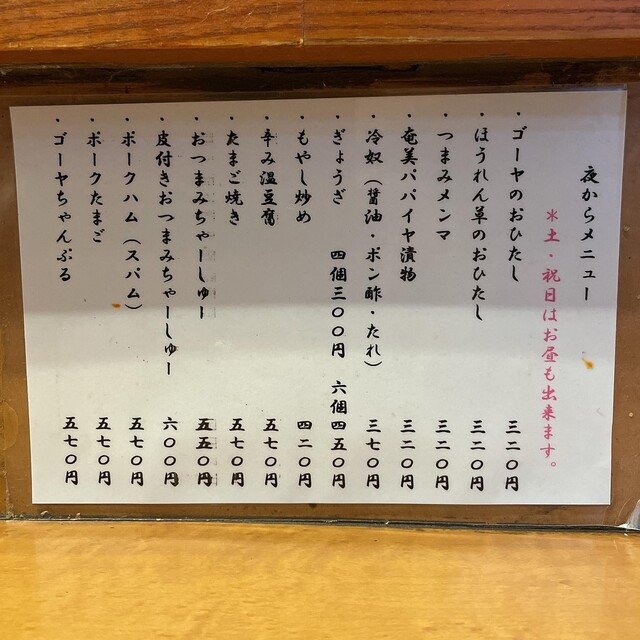 夜からメニュー
＊土・祝日はお昼も出来ます。
・ゴーヤのおひたし 三二〇円
・ほうれん草のおひたし 三二〇円
・つまみメンマ 三二〇円
・奄美パパイヤ漬物 三二〇円
・冷奴（醤油・ポン酢・たれ） 三七〇円
・ぎょうざ 四個三〇〇円 六個四五〇円
・もやし炒め 四二〇円
・辛み温豆腐 五七〇円
・たまご焼き 五七〇円
・おつまみちゃーしゅー 五五〇円
・皮付きおつまみちゃーしゅー 六〇〇円
・ポークハム（スパム） 五七〇円
・ポークたまご 五七〇円
・ゴーヤちゃんぷる 五七〇円